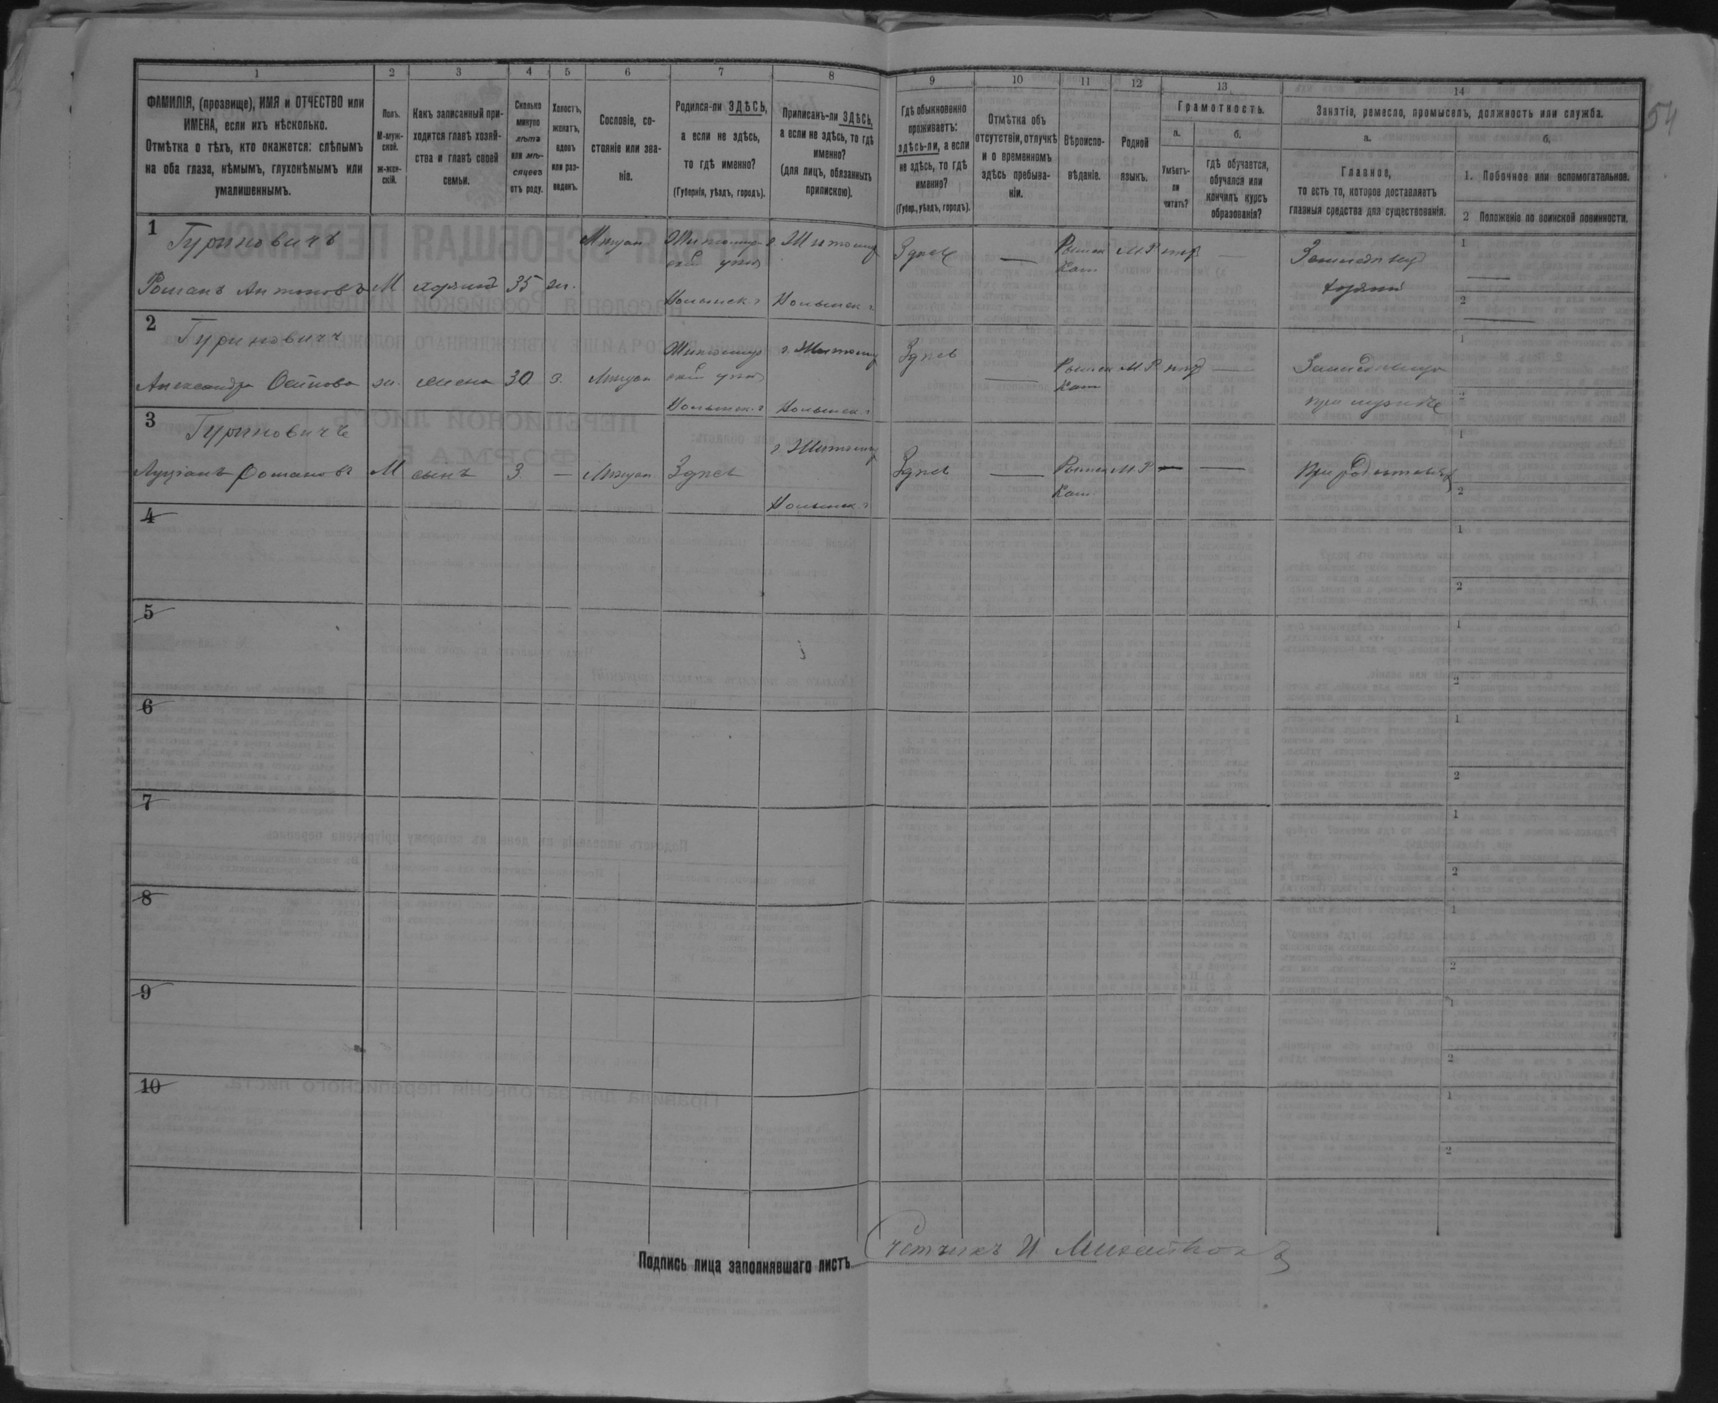 54
1 2 3 4 5 6 7 8 9 10 11 12 13 14
ФАМИЛІЯ, (прозвище), ИМЯ и ОТЧЕСТВО или
ИМЕНА, если ихъ нѣсколько.
Отмѣтка о тѣхъ, кто окажется: слѣпымъ
на оба глаза, нѣмымъ, глухонѣмымъ или
умалишеннымъ.
Полъ.
М-муж-
ской.
Ж-жен-
скій.
Какъ записанный при-
ходится главѣ хозяй-
ства и главѣ своей
семьи.
Сколько
минуло
лѣтъ
или мѣ-
сяцевъ
отъ роду.
Холостъ,
женатъ,
вдовъ
или раз-
веденъ.
Сословіе, со-
стояніе или зва-
ніе.
Родился-ли ЗДѢСЬ,
а если не здѣсь,
то гдѣ именно?
(Губернія, уѣздъ, городъ).
Приписанъ-ли ЗДѢСЬ,
а если не здѣсь, то гдѣ
именно?
(для лицъ, обязанныхъ
припискою).
Гдѣ обыкновенно
проживаетъ:
здѣсь-ли, а если
не здѣсь, то гдѣ
именно?
(Губер., уѣздъ, городъ).
Отмѣтка объ
отсутствіи, отлучкѣ
и о временномъ
здѣсь пребыва-
ніи.
Вѣроиспо-
вѣданіе.
Родной
языкъ.
Грамотность.
а.
Умѣетъ-
ли
читать?
б.
гдѣ обучается,
обучался или
кончилъ курсъ
образованія?
Занятіе, ремесло, промыселъ, должность или служба.
а.
Главное,
то есть то, которое доставляетъ
главныя средства для существованія.
б.
1. Побочное или вспомогательное.
2 Положеніе по воинской повинности.
1
Гуриновичъ Житомир
Романъ Антоновъ М хозяинъ 35 ж.
Волынск. г. Волынск. г.
Здѣсь — Римск Кат М Р —
1 —
2 —
2
Гуриновичъ
Александра Осипова ж. жена 30 з.
Волынск. г. Волынск. г.
Здѣсь — Римск Кат М Р —
при мужѣ
1
2
3
Гуриновичъ г. Житомир
Луціанъ Романовъ М сынъ 3 — Здѣсь
Волынск. г.
Здѣсь — Римск Кат М Р — —
при родителяхъ
1
2
4
1
2
5
1
2
6
1
2
7
1
2
8
1
2
9
1
2
10
1
2
Подпись лица заполнявшаго листъ Счетчикъ И